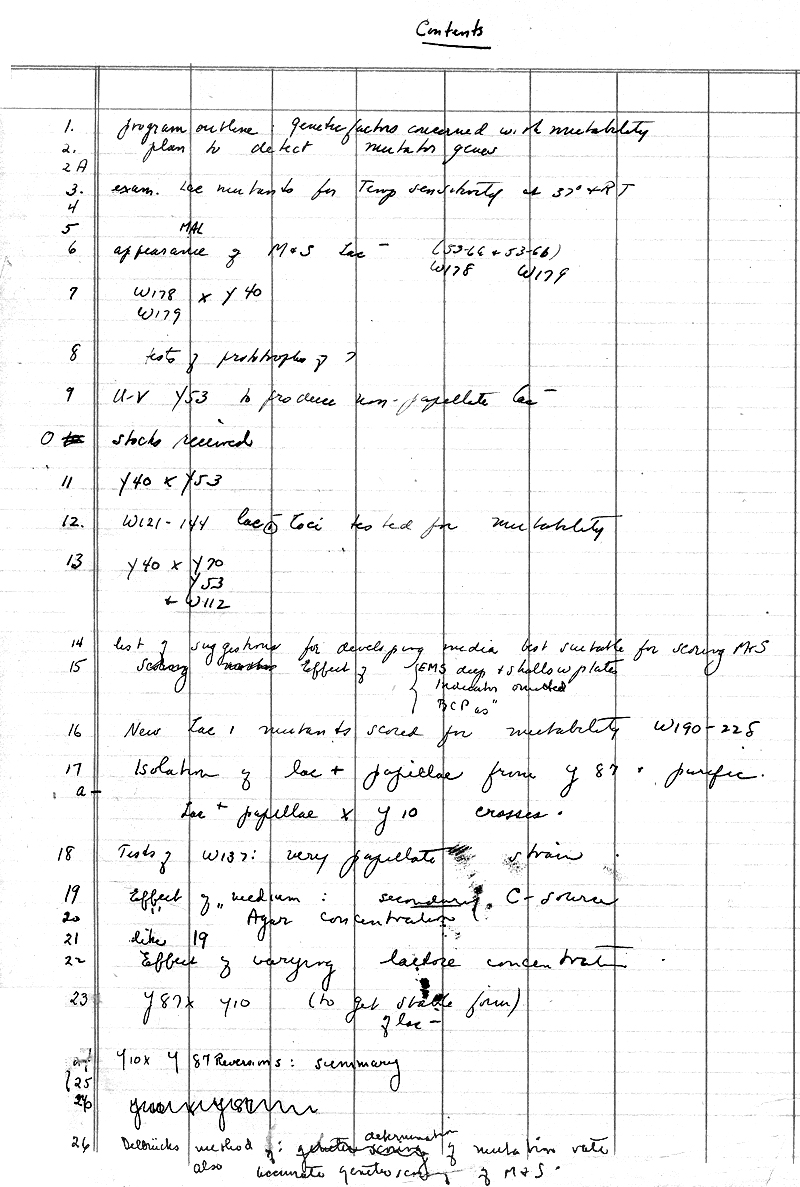 Contents
1. program outline : genetic factors concerned with mutability
2. plan to detect mutator genes
2A
3. exam. Lac mutants for Temp sensitivity at 37° + RT
4
5 MAL
6 appearance of M+S Lac − (53-66 + 53-6b)
W178 W179
7 W178 x Y40
W179
8 tests of prototrophs of 7
9 U-V Y53 to produce non-papillate lac −
0 stocks received
11 Y40 x Y53
12. W121-144 lac loci tested for mutability
13 Y40 x Y70
Y53
+ W112
14 list of suggestions for developing media best suitable for scoring M+S
15 Effect of { EMS deep + shallow plates
Indicator omitted
BCP as "
16 New Lac 1 mutants scored for mutability W190-228
17 Isolation of lac + papillae from Y 87 + purific.
a −
Lac + papillae x Y10 crosses.
18 Tests of W137: very papillate strain
19 Effect of medium : secondary C-source
20 " " Agar concentration
21 like 19
22 Effect of varying lactose concentration
23 Y87 x Y10 (to get stable form)
of lac −
Y10 x Y 87 Reversions: summary
25
26
26 Delbrücks method of : determination of mutation rate
also accurate genetic scoring of M+S.